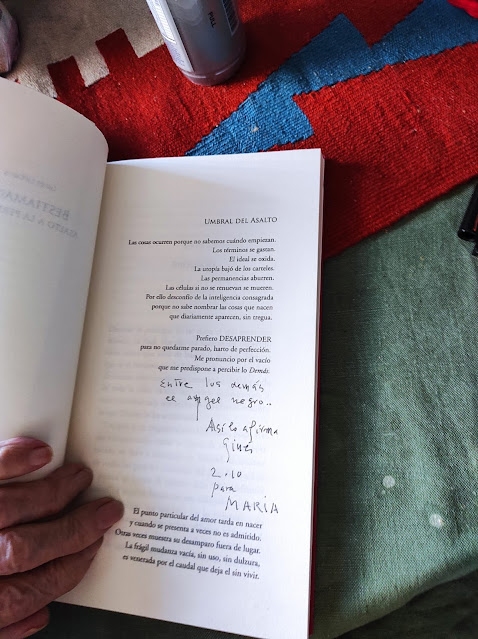 BESTIAMA
ASALTO A LA
UMBRAL DEL ASALTO
Las cosas ocurren porque no sabemos cuándo empiezan.
Los términos se gastan.
El ideal se oxida.
La utopía bajó de los carteles.
Las permanencias aburren.
Las células si no se renuevan se mueren.
Por ello desconfío de la inteligencia consagrada
porque no sabe nombrar las cosas que nacen
que diariamente aparecen, sin tregua.
Prefiero DESAPRENDER
para no quedarme parado, harto de perfección.
Me pronuncio por el vacío
que me predispone a percibir lo Demás.
Entre los demás
el angel negro..
Así lo afirma
Ginés
2.10
para
MARIA
El punto particular del amor tarda en nacer
y cuando se presenta a veces no es admitido.
Otras veces muestra su desamparo fuera de lugar.
La frágil mudanza vacía, sin uso, sin dulzura,
es venerada por el caudal que deja el sin vivir.